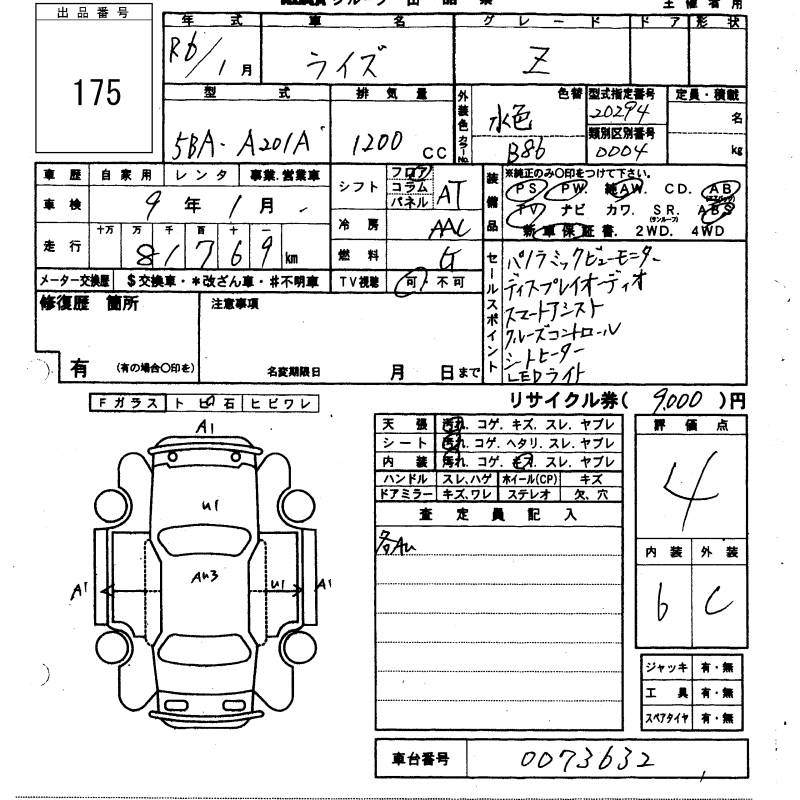 出品番号
175
年式 車名 グレード ドア 形状
R6/1月 ライズ Z
型式 排気量 外装色 色替 型式指定番号 定員・積載
5BA-A201A 1200CC 水色 20294 名
カラーNo. B86 類別区別番号 0004 kg
車歴 自家用 レンタ 事業.営業車
シフト フロア コラム パネル AT
装備品 ※純正のみ〇印をつけて下さい。
PS. PW. 純AW. CD. AB(エアバック)
車検 9年1月
冷房 AAC
TV ナビ カワ. SR.(サンルーフ) ABS
新車保証書. 2WD. 4WD
走行 十万 万 千 百 十 一
81769km
燃料 G
メーター交換歴 $交換車・*改ざん車・#不明車
TV視聴 可・不可
セールスポイント
パノラミックビューモニター
ディスプレイオーディオ
スマートアシスト
クルーズコントロール
シートヒーター
LEDライト
修復歴 箇所
有 (有の場合〇印を)
注意事項
名変期限日 月 日まで
リサイクル券( 9,000 )円
Fガラス トビ石 ヒビワレ
A1
U1
AU3
U1
A1
A1
天張 汚れ. コゲ. キズ. スレ. ヤブレ
シート 汚れ. コゲ. ヘタリ. スレ. ヤブレ
内装 汚れ. コゲ. キズ. スレ. ヤブレ
ハンドル スレ、ハゲ ホイール(CP) キズ
ドアミラー キズ、ワレ ステレオ 欠、穴
査定員記入
各AU
評価点
4
内装 外装
b C
ジャッキ 有・無
工具 有・無
スペアタイヤ 有・無
車台番号 0073632